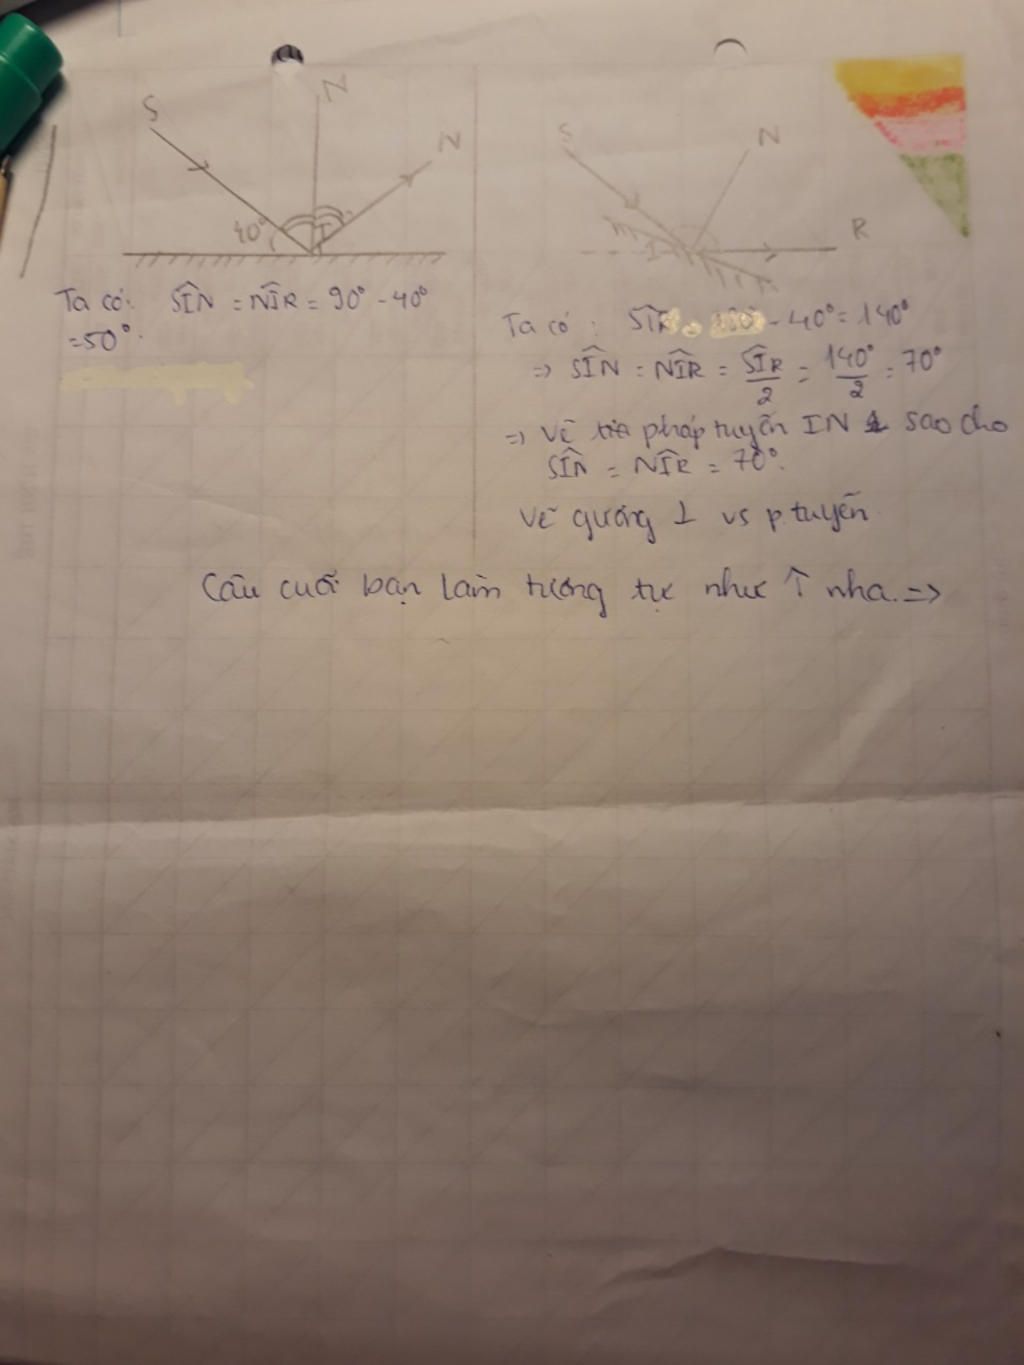 S
N
N
40°
I
Ta có: SÎN = NÎR = 90° - 40°
= 50°.
S
N
R
I
Ta có: SÎR = 180° - 40° = 140°
=> SÎN = NÎR = SÎR/2 = 140°/2 = 70°
=> Vẽ tia pháp tuyến IN sao cho
SÎN = NÎR = 70°.
Vẽ gương ⊥ vs p.tuyến
Câu cuối bạn làm tương tự như ↑ nha. =>